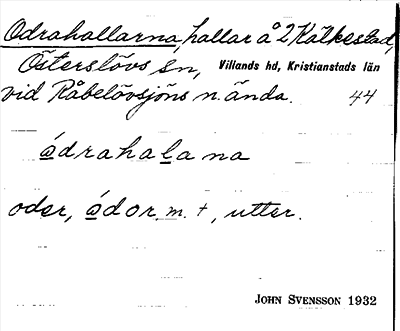 Odrahallarna, hallar å 2 Kälkestad,
Österslövs sn, Villands hd, Kristianstads län
vid Råbelövsjöns n. ända. 44
ådrahalana
oder, ådor m. †, utter.
JOHN SVENSSON 1932